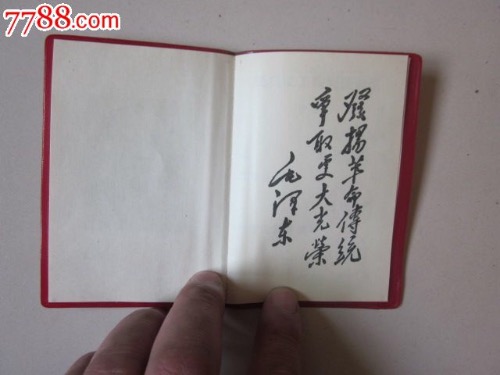 7788.com
發揚革命傳統
爭取更大光榮
毛澤东